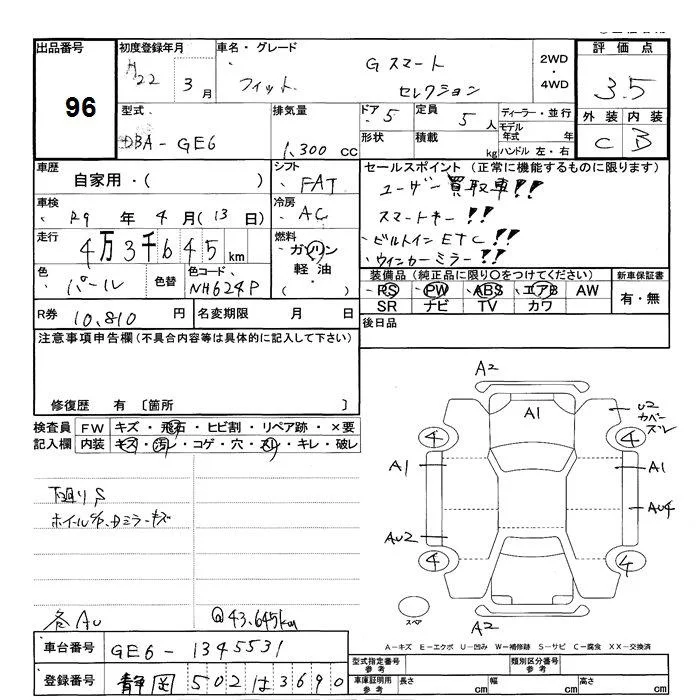 出品番号 初度登録年月 車名・グレード 評価点
96
H22 3月 フィット Gスマート セレクション 2WD・4WD 3.5
型式 排気量 ドア 5 定員 5人 ディーラー・並行 外装 内装
DBA-GE6 1,300cc 形状 積載 kg モデル年式 年 C B
ハンドル 左・右
車歴 シフト セールスポイント(正常に機能するものに限ります)
自家用・( ) FAT ユーザー買取車!!
車検 冷房 スマートキー!!
R9年 4月(13日) AC ビルトインETC!!
走行 燃料 ウィンカーミラー!!
4万3千645km ガソリン 軽油・( )
色 色替 色コード 装備品(純正品に限り○をつけてください) 新車保証書
パール NH624P PS PW ABS エアB AW 有・無
SR ナビ TV カワ
R券 10,810円 名変期限 月 日 後日品
注意事項申告欄(不具合内容等は具体的に記入して下さい)
修復歴 有 〔箇所 〕
検査員 FW キズ・飛石・ヒビ割・リペア跡・×要
記入欄 内装 キズ・汚レ・コゲ・穴・スリ・キレ・破レ
下廻りS
ホイールC/P、Dミラーキズ
各AU @43,645km
A2
A1
U2 カバーズレ
4 4
A1 A1
AU4
AU2
4 4
スペア
A2
A-キズ E-エクボ U-凹み W-補修跡 S-サビ C-腐食 XX-交換済
車台番号 GE6-1345531
登録番号 静岡502は3690
型式指定番号 参考 類別区分番号 参考
車庫証明用 参考 長さ cm 幅 cm 高さ cm